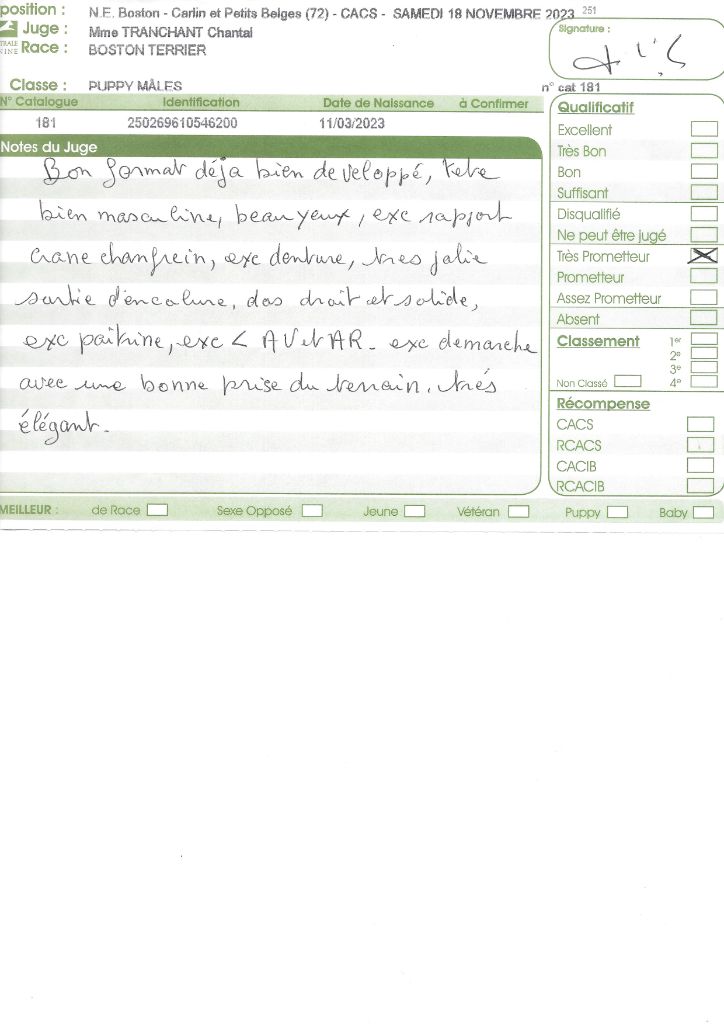 position : N.E. Boston - Carlin et Petits Belges (72) - CACS - SAMEDI 18 NOVEMBRE 2023 251
Juge : Mme TRANCHANT Chantal
TRALE
NINE Race : BOSTON TERRIER
Signature :
Classe : PUPPY MÂLES
n° cat 181
N° Catalogue Identification Date de Naissance à Confirmer
181 250269610546200 11/03/2023
Notes du Juge
Bon format déja bien developpé, tete
bien masculine, beau yeux, exc rapport
crane chanfrein, exc denture, tres jolie
sortie d'encolure, dos droit et solide,
exc poitrine, exc < AV et AR - exc demarche
avec une bonne prise du terrain. trés
élégant.
Qualificatif
Excellent
Très Bon
Bon
Suffisant
Disqualifié
Ne peut être jugé
Très Prometteur
Prometteur
Assez Prometteur
Absent
Classement 1er
2e
3e
Non Classé 4e
Récompense
CACS
RCACS
CACIB
RCACIB
MEILLEUR : de Race Sexe Opposé Jeune Vétéran Puppy Baby